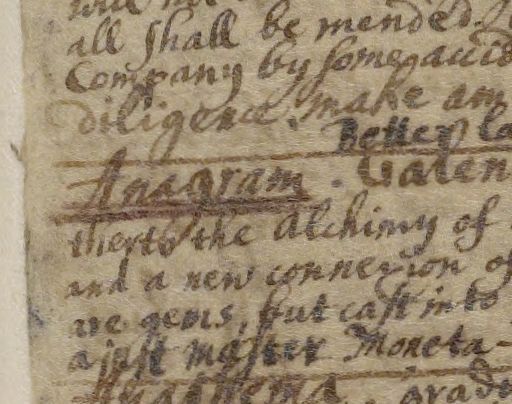 will not
all shall be mended.
Company by some accid
diligence, make am
Better la
Anagram. Galen
therto the Alchimy of
and a new connexion of
are gems, but cast into
a just master Moneta-
Anathema. gradu